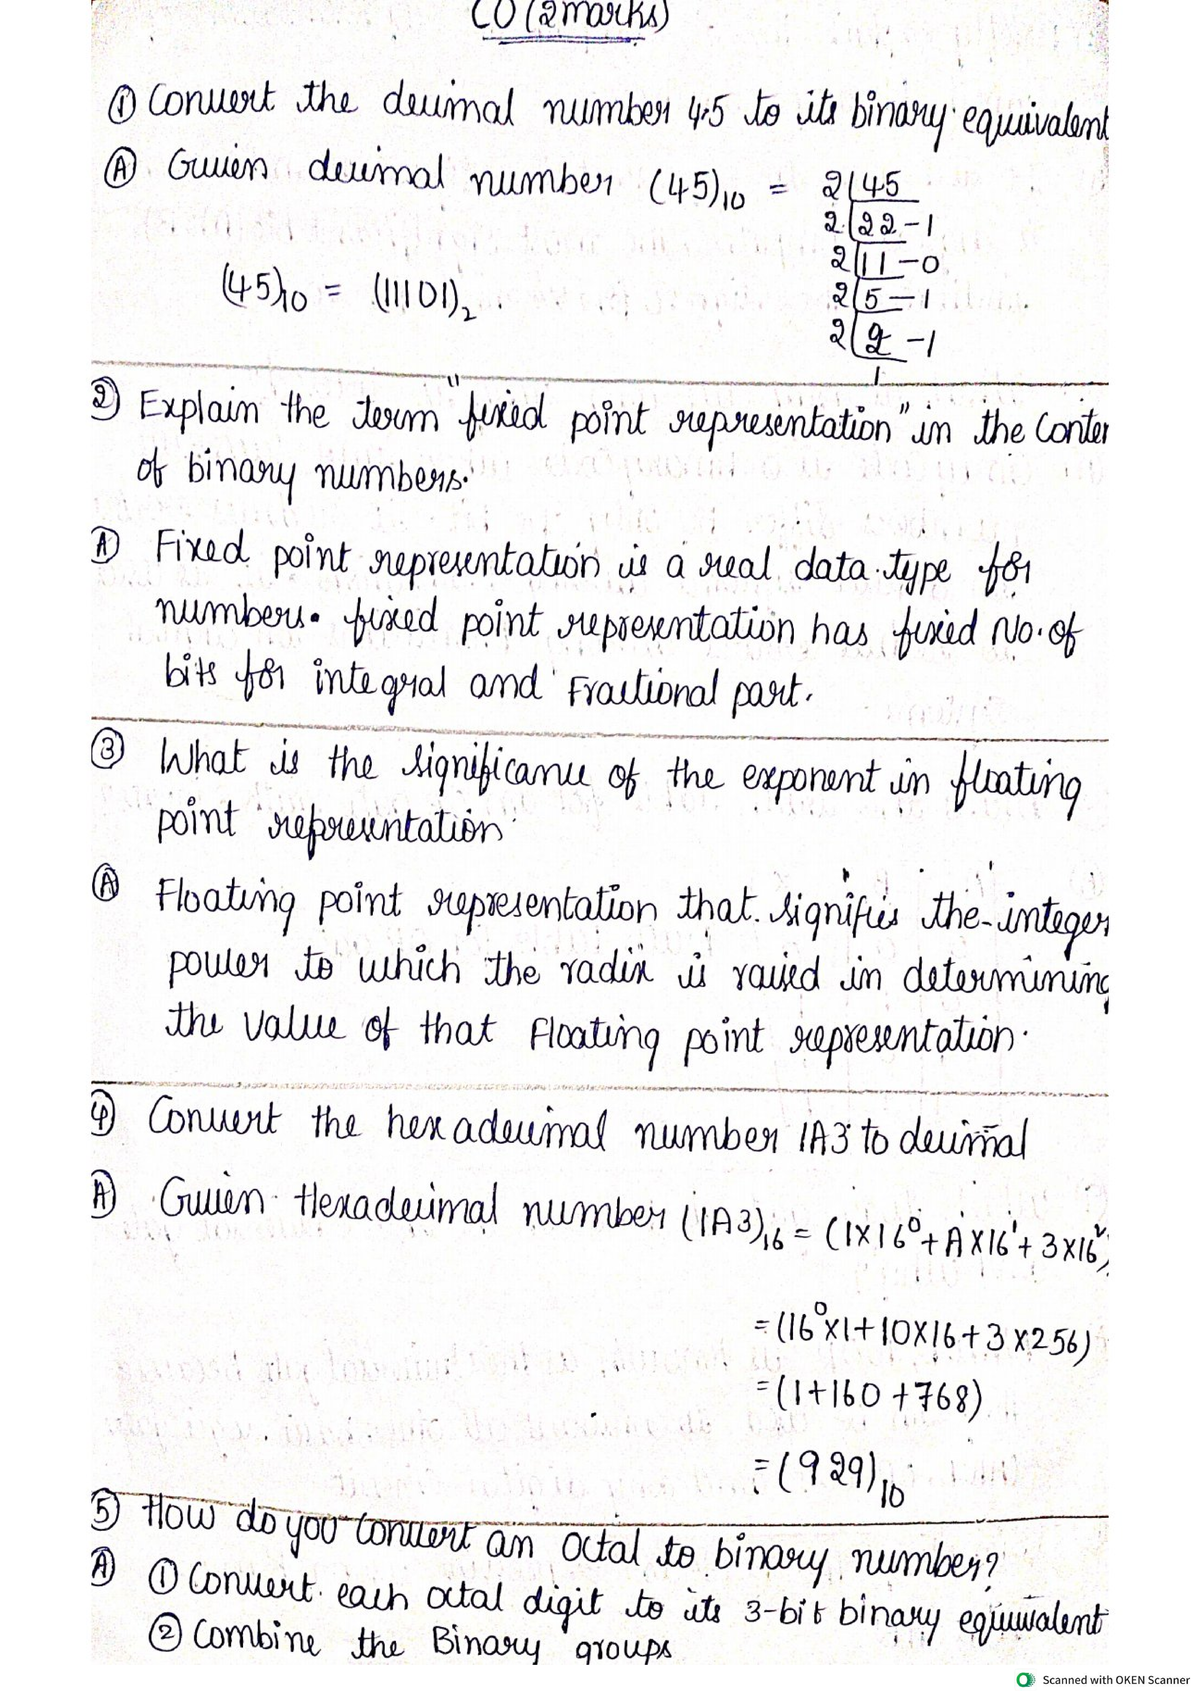 CO (2marks)
① Convert the decimal number 45 to its binary equivalent
Ⓐ Given decimal number (45)10 = 2|45
2|22-1
2|11-0
(45)10 = (11101)2
2|5-1
2|2-1
1
② Explain the term "fixed point representation" in the Contex
of binary numbers.
Ⓐ Fixed point representation is a real data type for
numbers. fixed point representation has fixed No. of
bits for integral and Fractional part.
③ What is the significance of the exponent in floating
point representation
Ⓐ Floating point representation that signifies the integer
power to which the radix is raised in determining
the value of that Floating point representation.
④ Convert the hexadecimal number 1A3 to decimal
Ⓐ Given Hexadecimal number (1A3)16 = (1X16⁰+AX16¹+3X16²)
=(16⁰X1+10X16+3X256)
=(1+160+768)
=(929)10
⑤ How do you Convert an Octal to binary number?
Ⓐ ① Convert each octal digit to its 3-bit binary equivalent
② Combine the Binary groups
Scanned with OKEN Scanner